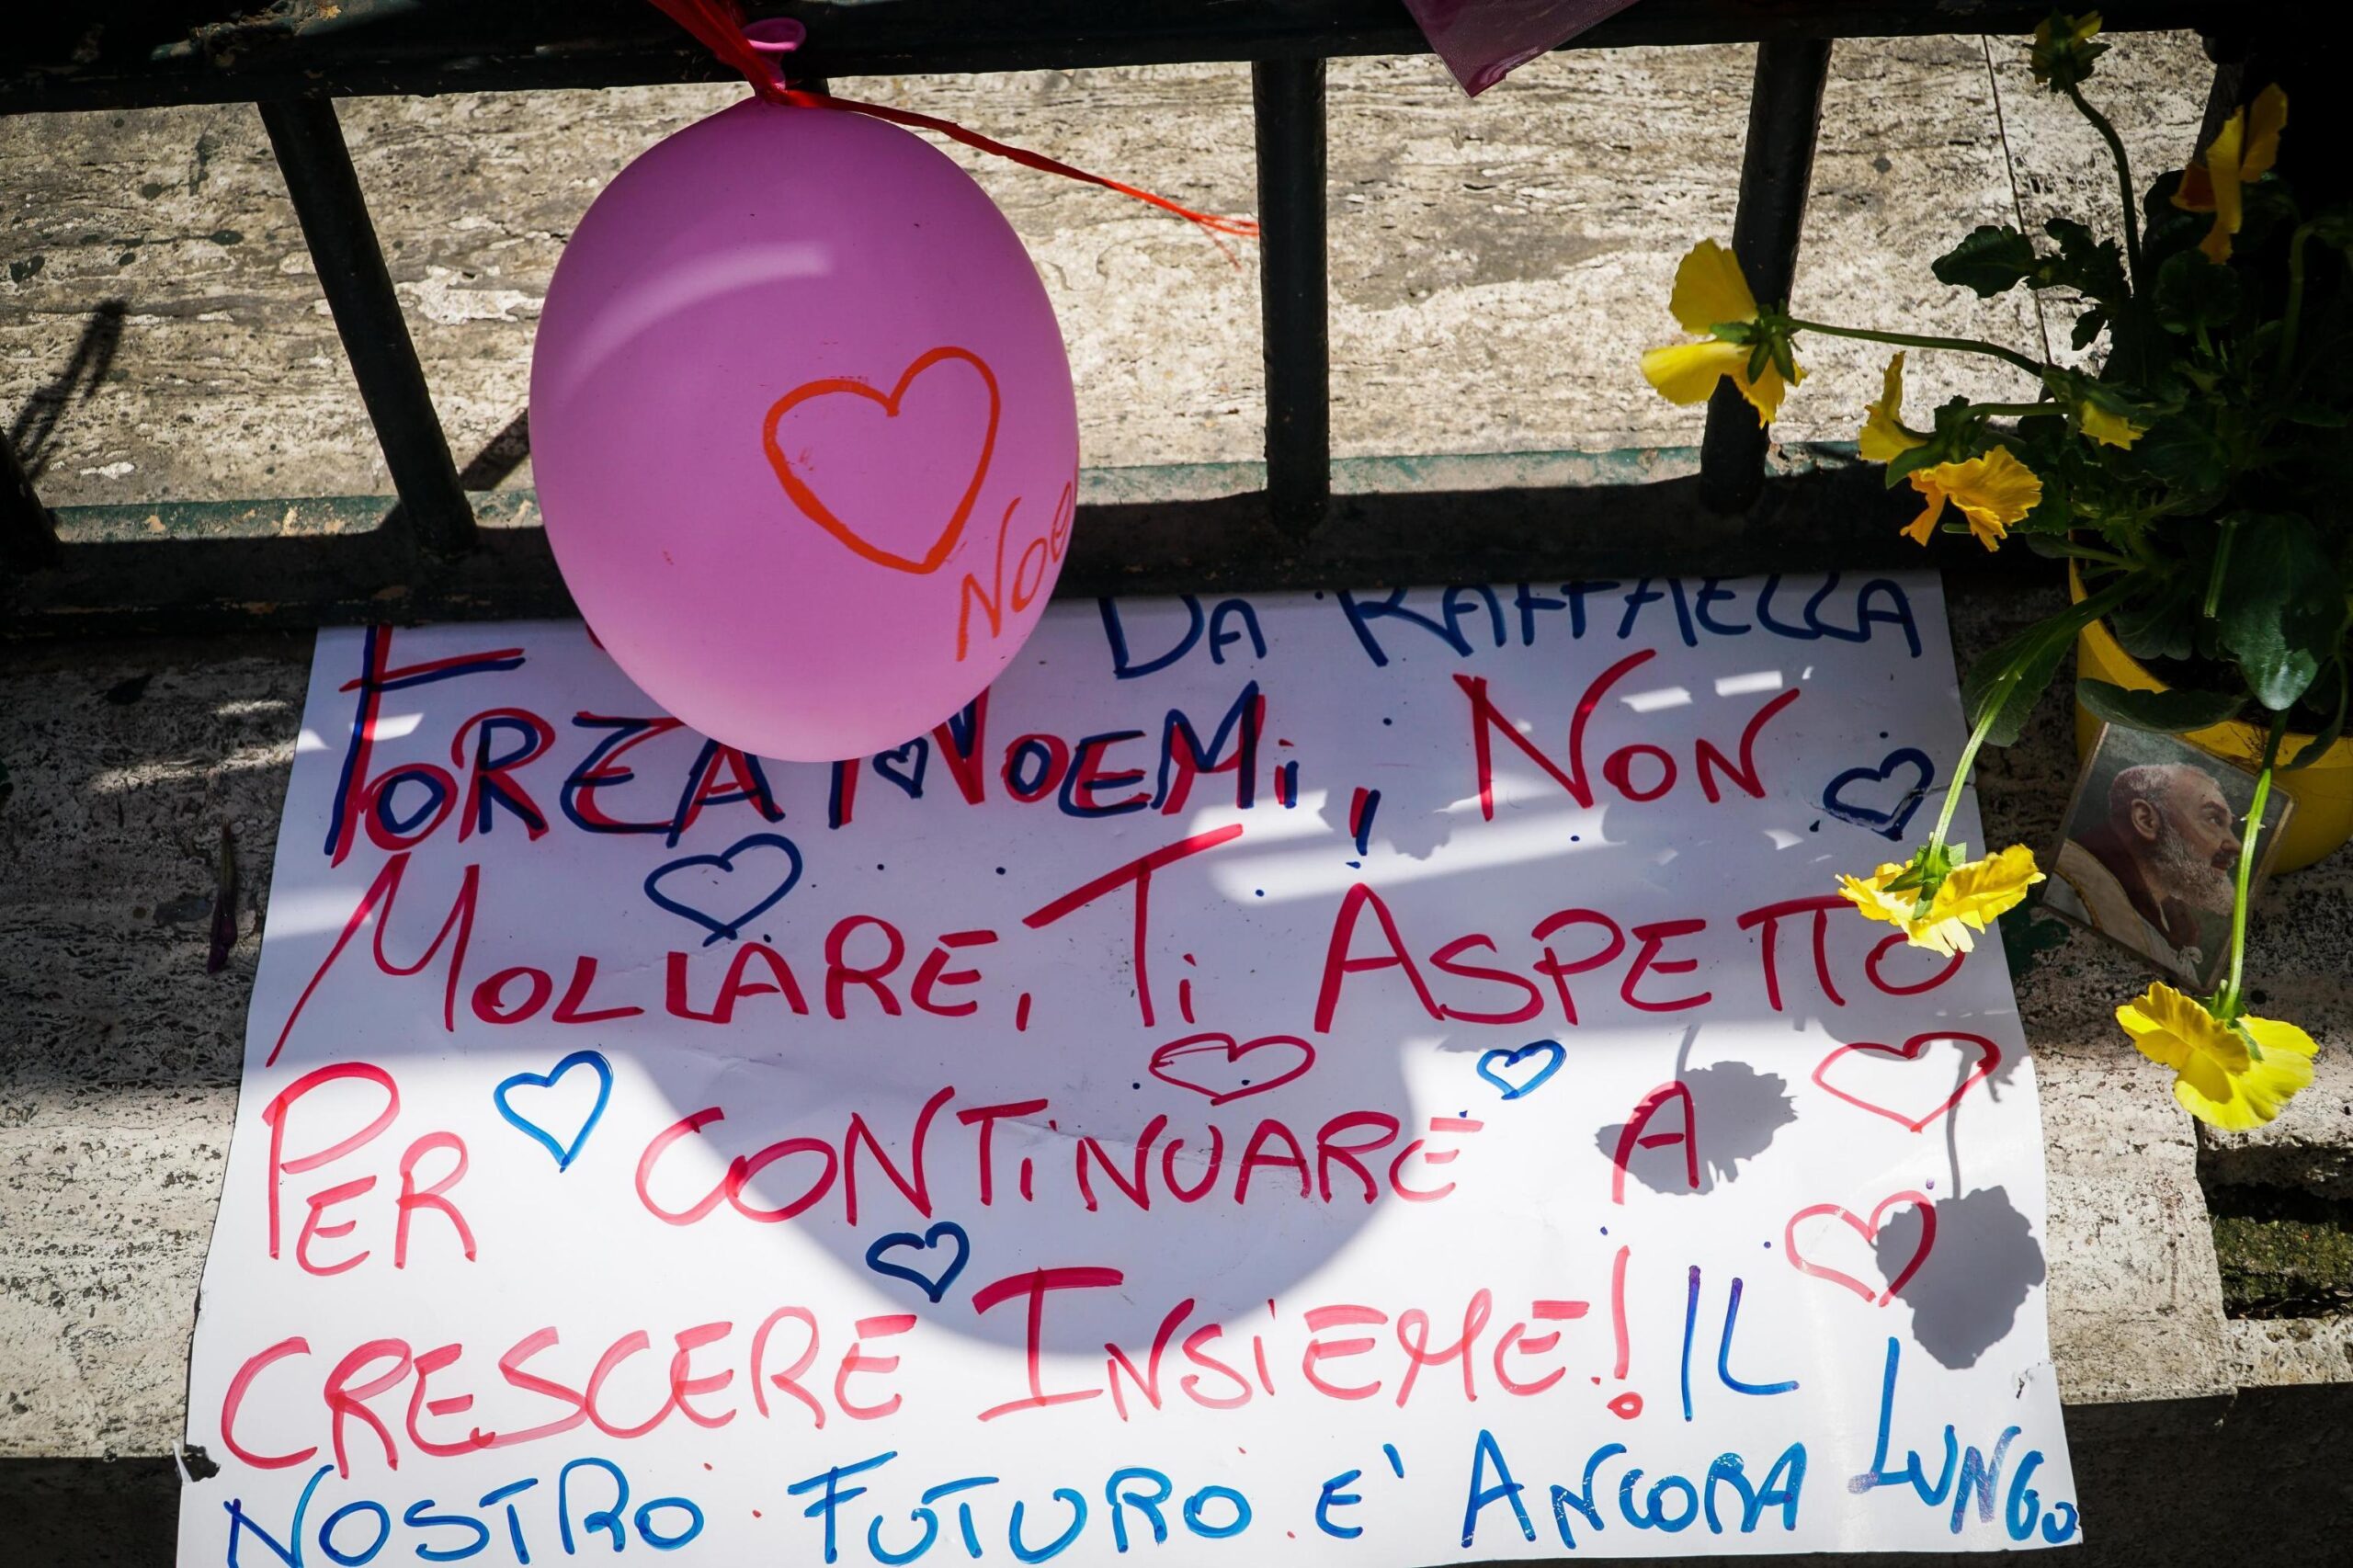 DA RAFFAELLA
FORZA NOEMi, NON
MOLLARE, Ti ASPETTO
PER CONTiNUARE A
CRESCERE INSiEME! IL
NOSTRO FUTURO E' ANCORA LUNGO